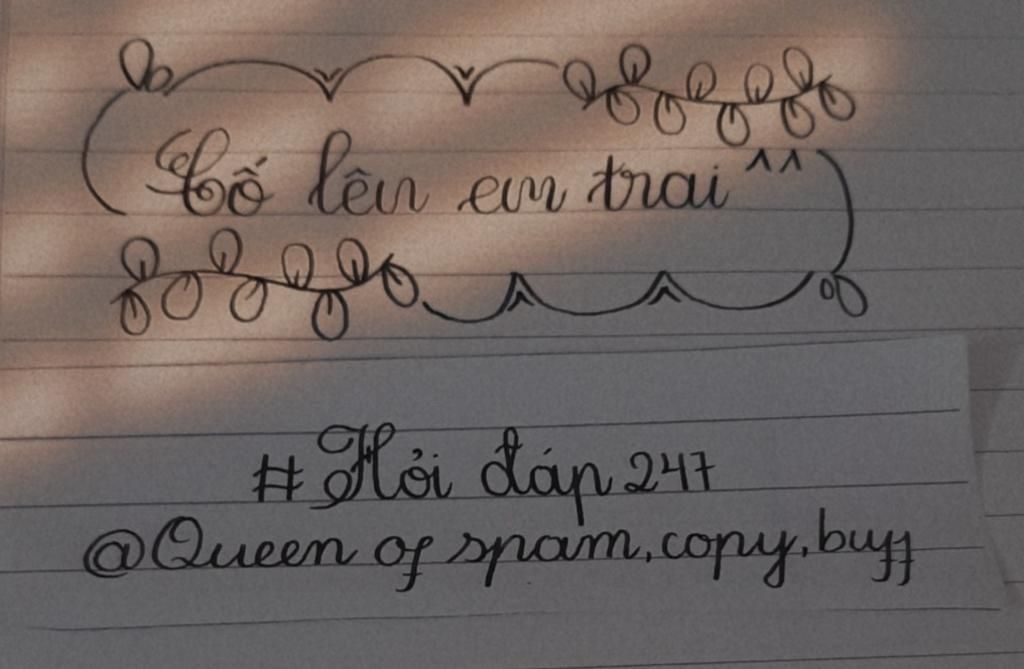 Cố lên em trai ^^
#Hỏi đáp 247
@Queen of spam, copy, buff